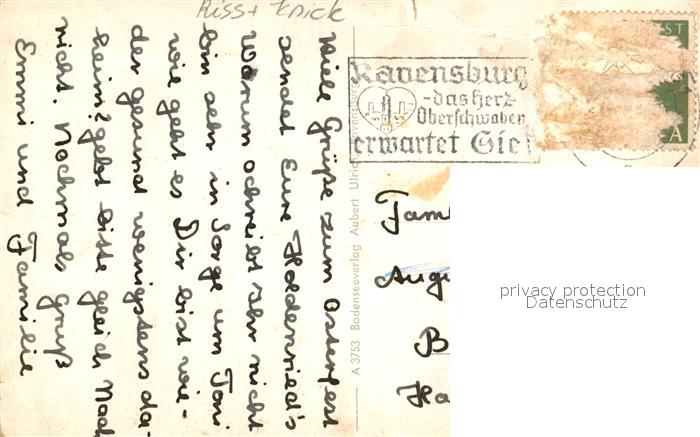 Riss + Knick
Viele Grüße zum Osterfest
sendet Eure Haldenried's
Warum schreibt Ihr nicht
bin sehr in Sorge um Toni
wie geht es Dir bist wie-
der gesund wenigstens da-
heim? gebt bitte gleich Nach
richt. Nochmals Gruß
Emmi und Familie
A 3753 Bodenseeverlag Aubert Ulrich Ravensburg
Ravensburg
-das Herz-
Oberschwaben
erwartet Sie!
ST
A
Fam
Aug
B
Ha
privacy protection
Datenschutz